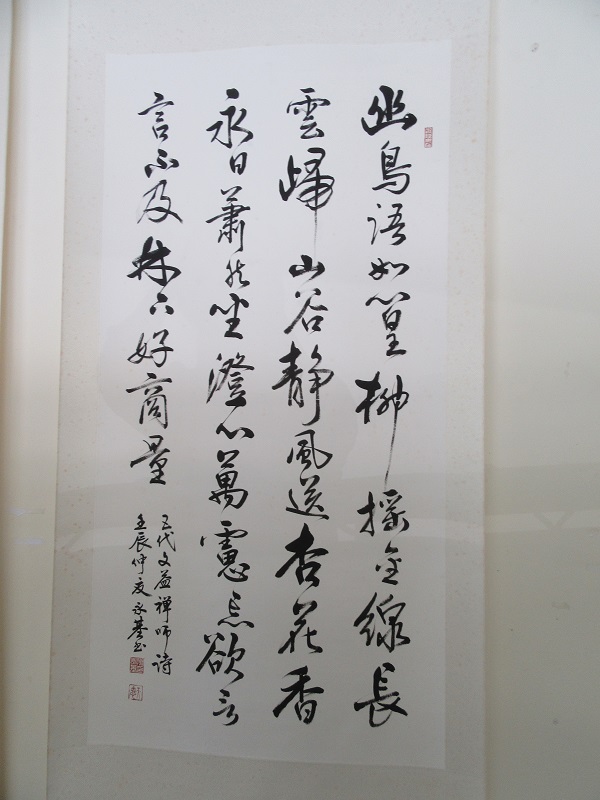 幽鳥語如篁柳摇金線長
雲歸山谷静風送杏花香
永日蕭然坐澄心萬慮忘欲言
言不及林下好商量
五代文益禅师诗
壬辰仲夏永基书